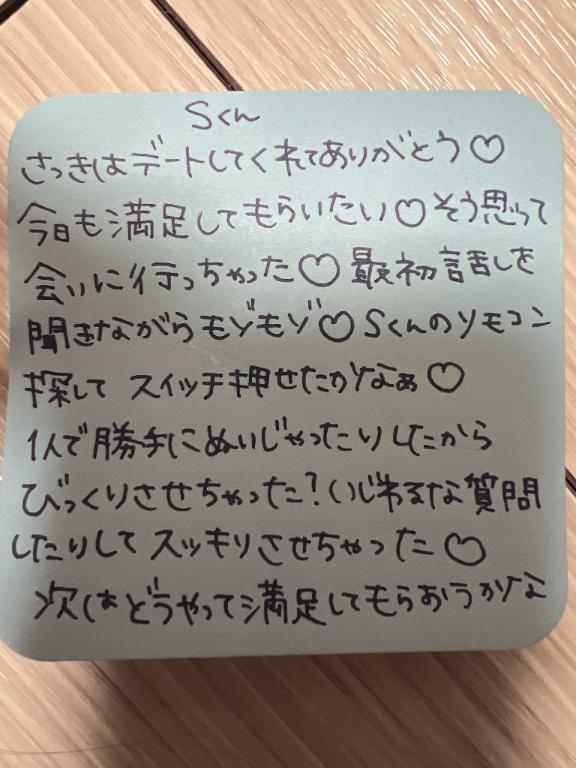 Sくん
さっきはデートしてくれてありがとう♡
今日も満足してもらいたい♡そう思って
会いに行っちゃった♡最初話しを
聞きながらモゾモゾ♡Sくんのリモコン
探して スイッチ押せたかなぁ♡
1人で勝手にぬいじゃったりしたから
びっくりさせちゃった?いじわるな質問
したりして スッキリさせちゃった♡
次はどうやって満足してもらおうかな